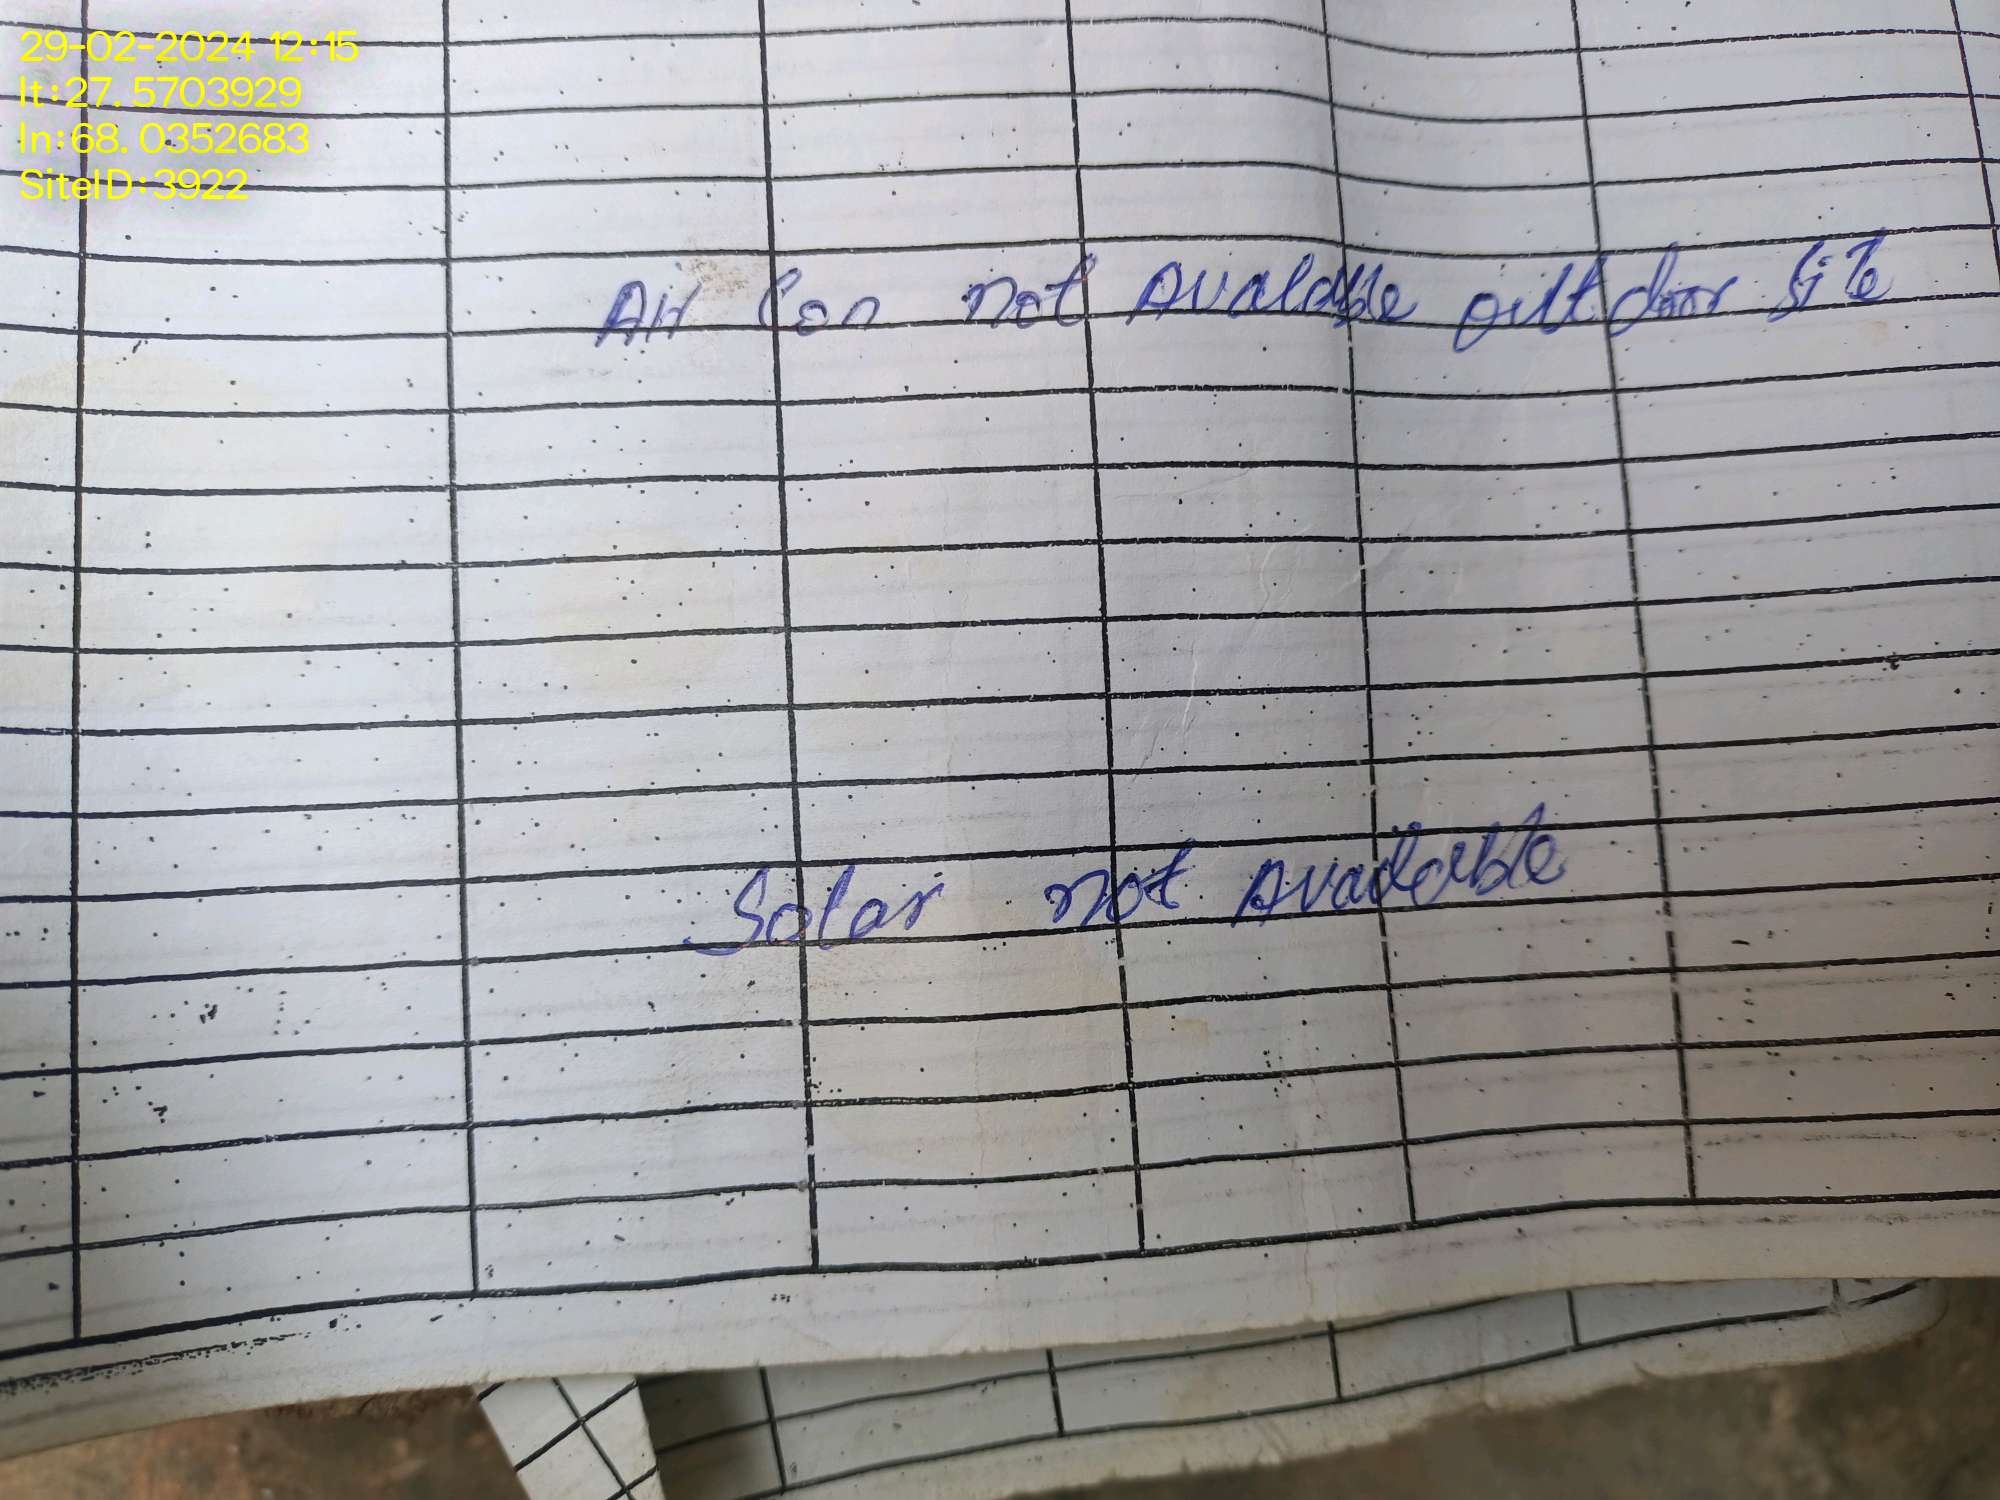 29-02-2024 12:15
lt:27.5703929
ln:68.0352683
SiteID:3922
Air Con not Avalable outdoor site
Solar not Available